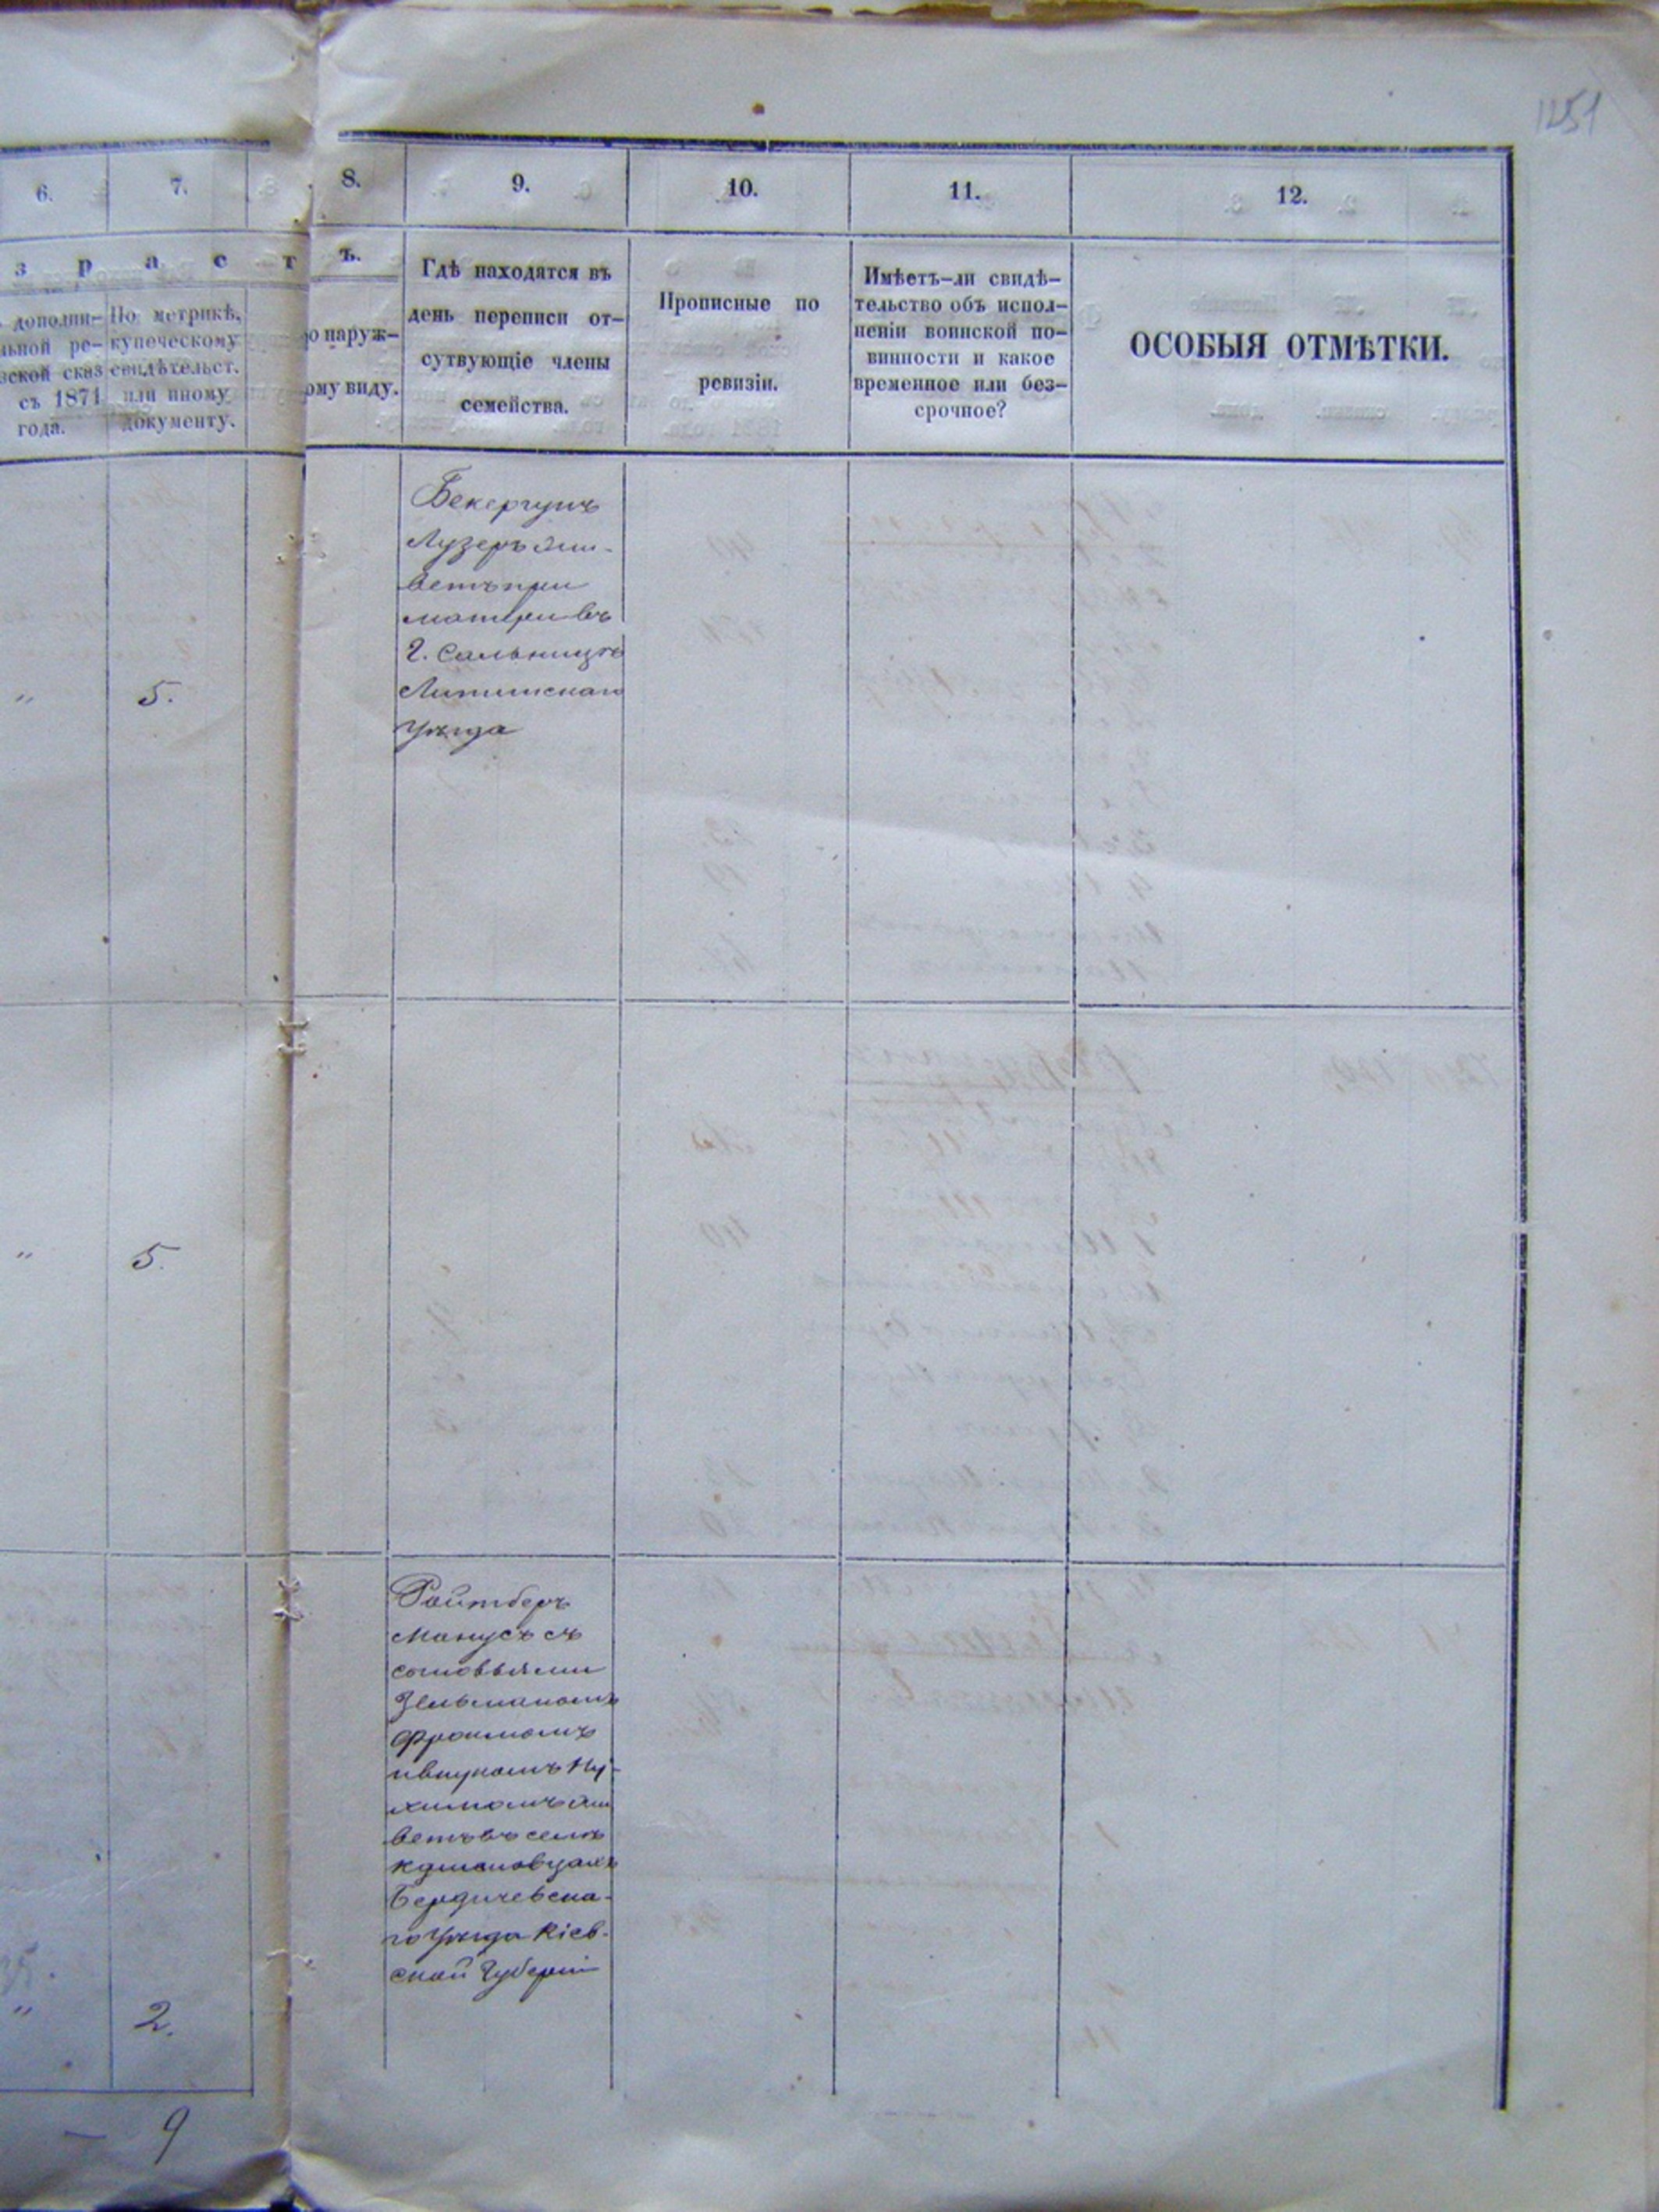 1251
6.
7.
8.
9.
10.
11.
12.
з р а с т ъ.
дополни-
льной ре-
вской сказ
съ 1871
года.
По метрикѣ,
купеческому
свидѣтельст.
или иному
документу.
о наруж-
ому виду.
Гдѣ находятся въ
день переписи от-
сутвующіе члены
семейства.
Прописные по
ревизіи.
Имѣетъ-ли свидѣ-
тельство объ испол-
неніи воинской по-
винности и какое
временное или без-
срочное?
ОСОБЫЯ ОТМѢТКИ.
Бекергунъ
Лузеръ жи-
ветъ при
матери въ
г. Сальницѣ
Литинскаго
Уѣзда
" 5.
" 5.
Ройтберъ
Манусъ съ
сыновьями
Зельманомъ
Фроимомъ
и внукомъ Ну-
химомъ жи
ветъ въ селѣ
Бердичевска-
го Уѣзда Кіев-
ской Губерніи
" 2.
— 9